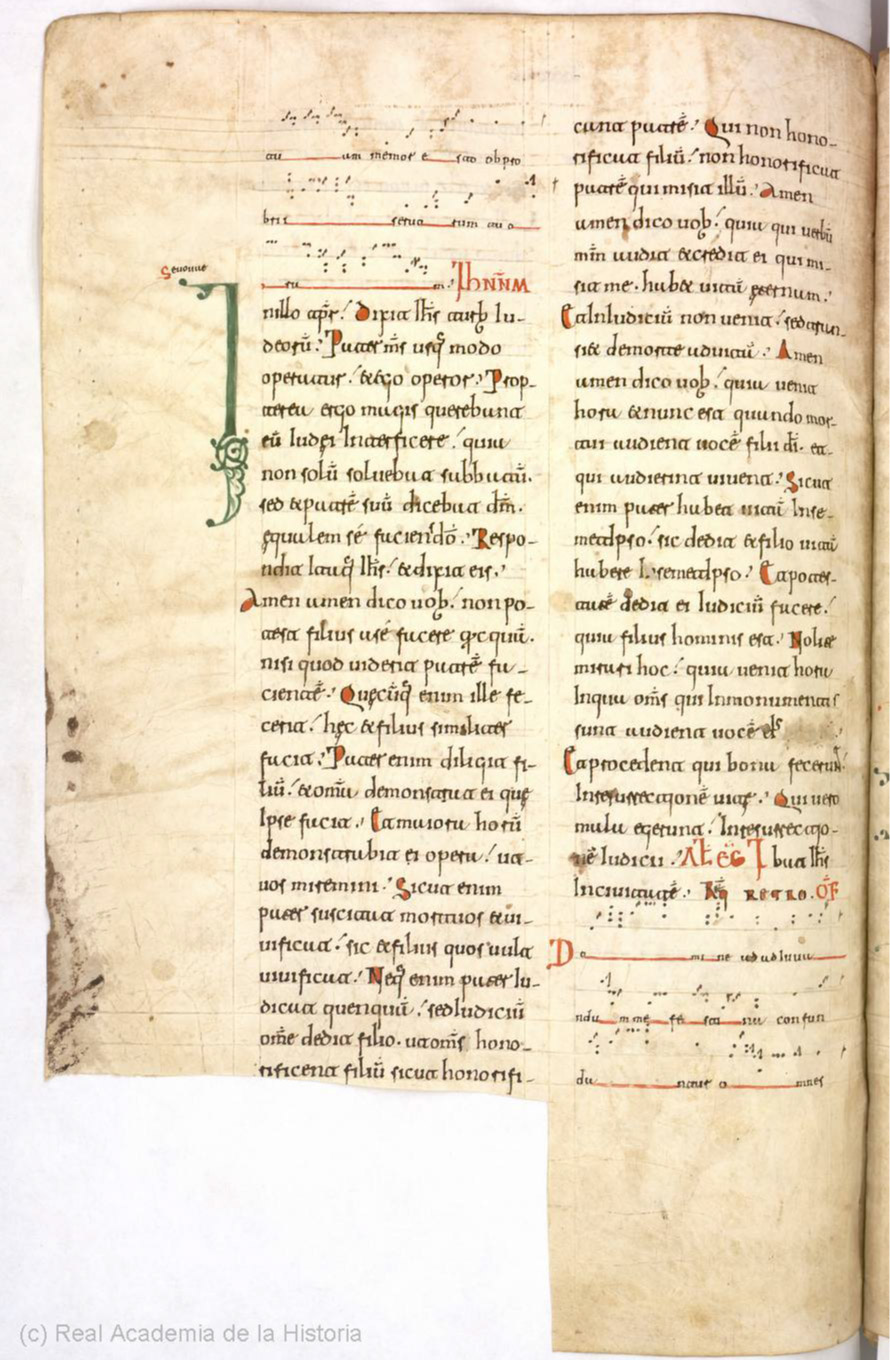 um memor e sto obpro
brii servo rum tuo
ru m
In illo tp̄r̄. Dixit Ihs̄ turb Iu-
deorū. Pater ms̄ usq modo
operatur. et ego operor. Prop-
terea ergo magis querebant
eū Iudęi Interficere. quia
non solū solvebat sabbatū.
sed et patrē suū dicebat dm̄.
ęqualem se faciens dō. Respo-
ndit Itaq Ihs̄. et dixit eis.
Amen amen dico vob. non po-
test filius a se facere quicquā.
nisi quod viderit patrē fa-
cientē. Quęcūq enim ille fe-
cerit. hęc et filius similiter
facit. Pater enim diligit fi-
liū. et omnia demonstrat ei quę
Ipse facit. Et maiora horū
demonstrabit ei opera. ut
vos miremini. Sicut enim
pater suscitat mortuos et vi-
vificat. sic et filius quos vult
vivificat. Neq enim pater Iu-
dicat quenquā. sed Iudiciū
om̄e dedit filio. ut om̄s hono-
rificent filiū sicut honorifi-
cant patrē. Qui non hono-
rificat filiū. non honorificat
patrē qui misit illū. Amen
amen dico vob. quia qui verbū
m̄m audit et credit ei qui mi-
sit me. habet vitā ęternam.
Et In Iudiciū non venit. sed transi-
et de morte ad vitā. Amen
amen dico vob. quia venit
hora et nunc est quando mor-
tui audient vocē filii dī. et
qui audierint vivent. Sicut
enim pater habet vitā In se-
metIpso. sic dedit et filio vitā
habere In semetIpso. Et potes-
tatē dedit ei Iudiciū facere.
quia filius hominis est. Nolite
mirari hoc. quia venit hora
In qua om̄s qui In monumentis
sunt audient vocē eIs
Et procedent qui bona fecerunt
In resurrectionē vitę. Qui vero
mala egerunt. In resurrectio-
nē Iudicii. Alt eg Ibat Ihs̄
In civitatē. Rq retro. OF
Do mi ne ad adiuva
ndu m me fe sti na confun
da ntur o mnes
(c) Real Academia de la Historia